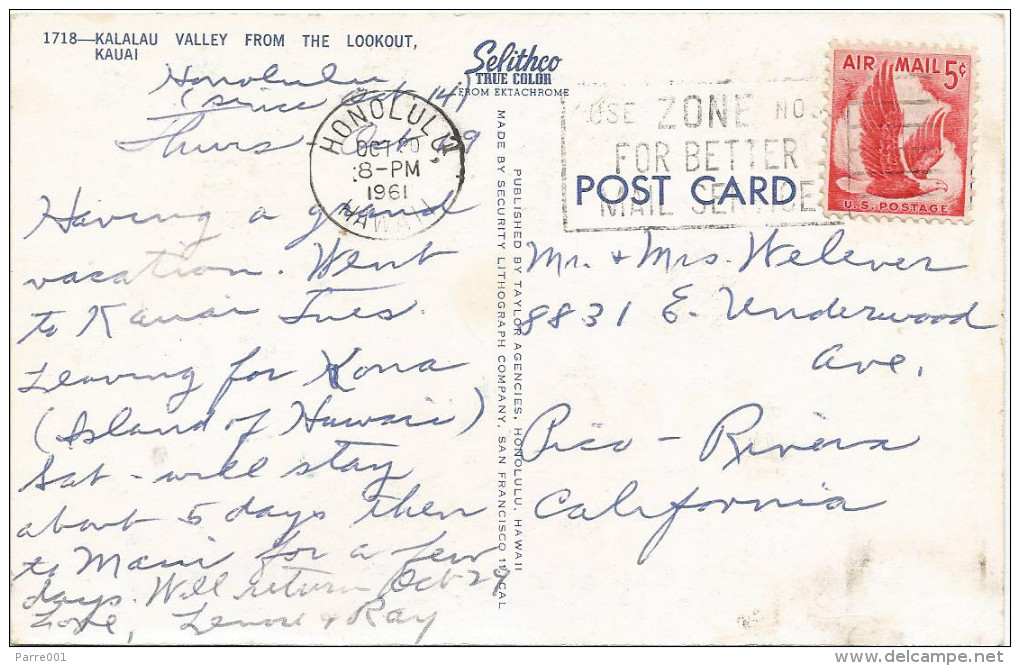 1718—KALALAU VALLEY FROM THE LOOKOUT,
KAUAI
Honolulu
(since Oct 14)
Thurs - Oct 19
Having a grand
vacation. Went
to Kauai Tues.
Leaving for Kona
(Island of Hawaii)
Sat - will stay
about 5 days then
to Maui for a few
days. Will return Oct 29
Love, Lenore & Ray
Selithco
TRUE COLOR
FROM EKTACHROME
HONOLULU,
OCT 20
8-PM
1961
HAWAII
MADE BY SECURITY LITHOGRAPH COMPANY, SAN FRANCISCO 11, CAL
PUBLISHED BY TAYLOR AGENCIES, HONOLULU, HAWAII
USE ZONE NO.
FOR BETTER
MAIL SERVICE
POST CARD
AIR MAIL 5¢
U.S. POSTAGE
Mr. & Mrs. Welever
8831 E. Underwood
Ave.
Pico - Rivera
California
Parre001
delcampe.net